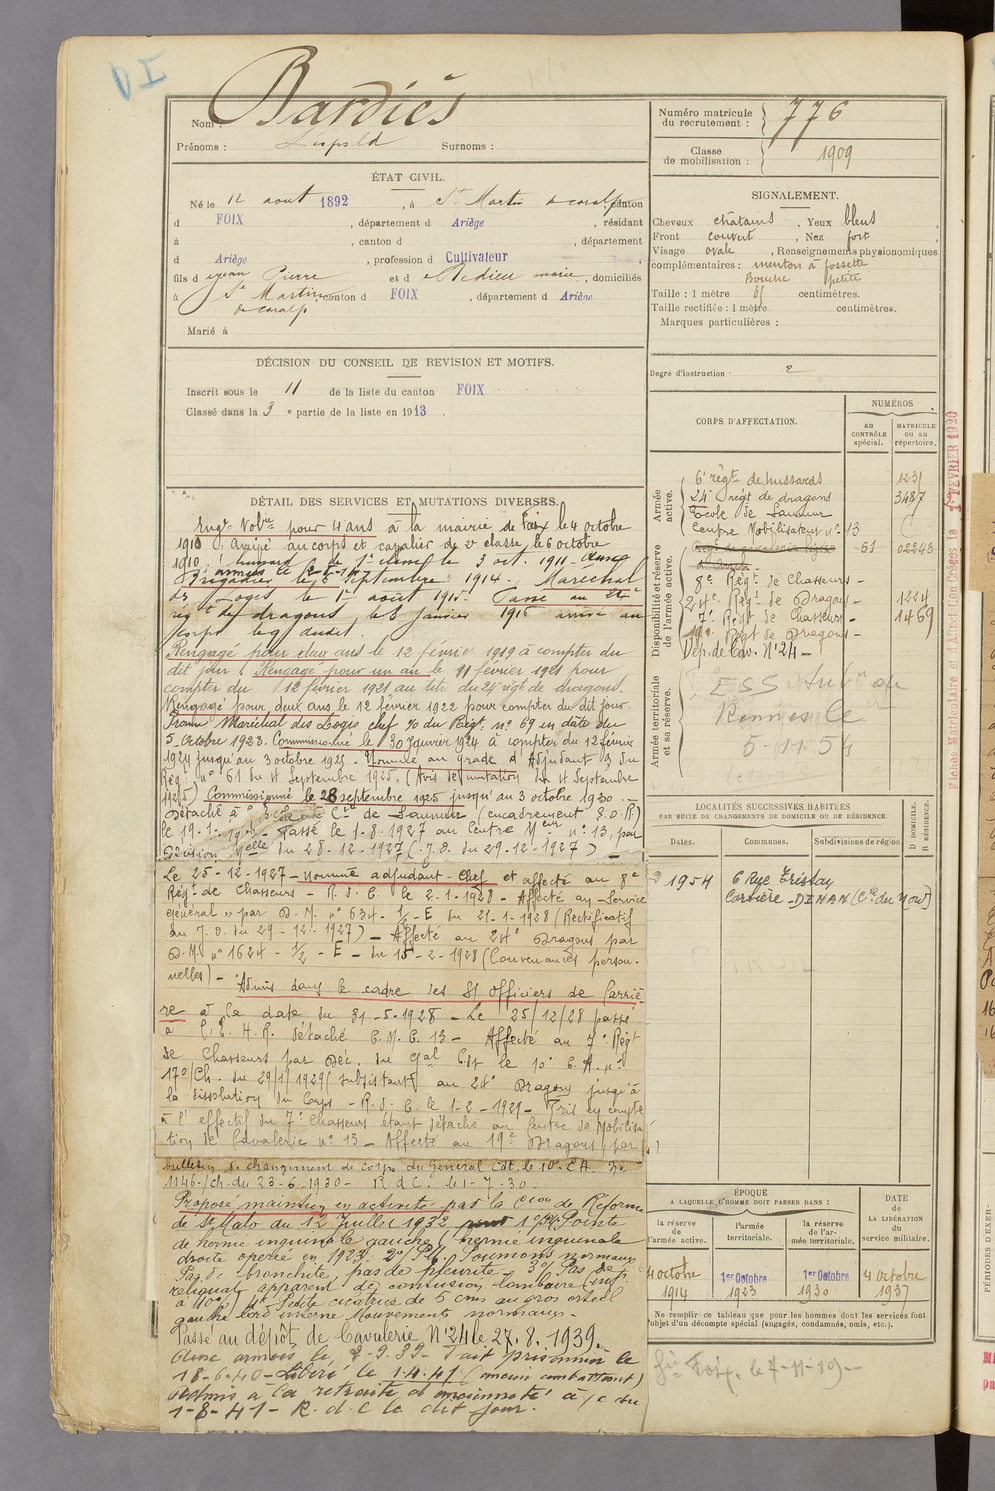 DI
Nom : Bardiès
Prénoms : Léopold Surnoms :
Numéro matricule du recrutement : 776
Classe de mobilisation : 1909
ÉTAT CIVIL.
Né le 12 aout 1892, à St Martin de caralp, canton
d FOIX, département d Ariège, résidant
à , canton d , département
d Ariège, profession d Cultivateur,
fils d e jean Pierre et d e Dedieu marie, domiciliés
à St Martin de caralp canton d FOIX, département d Ariège
Marié à
SIGNALEMENT.
Cheveux châtains, Yeux bleus
Front couvert, Nez fort
Visage ovale, Renseignements physionomiques
complémentaires : menton à fossette
Bouche petite
Taille : 1 mètre 61 centimètres.
Taille rectifiée : 1 mètre centimètres.
Marques particulières :
Degré d'instruction : 2
DÉCISION DU CONSEIL DE REVISION ET MOTIFS.
Inscrit sous le 11 de la liste du canton FOIX
Classé dans la 3e partie de la liste en 1913.
DÉTAIL DES SERVICES ET MUTATIONS DIVERSES.
Engé Volre pour 4 ans à la mairie de Foix le 4 octobre
1910. Arrivé au corps et cavalier de 2e classe, le 6 octobre
1910. hussard de 1e classe le 3 oct. 1911.
Brigadier le 5 Septembre 1914. Maréchal
des Logis le 1er août 1915. Passé au 24e
régt de dragons, le 8 Janvier 1916 arrivé au
corps le 9 dudit.
Rengagé pour deux ans le 12 février 1919 à compter du
dit jour. Rengagé pour un an le 11 février 1921 pour
compter du 12 février 1921 au titre du 24e régt de dragons.
Rengagé pour deux ans le 12 février 1922 pour compter du dit jour.
Promu Maréchal des Logis chef 90 du Régt. n° 69 en date du
5 Octobre 1923. Commissionné le 30 Janvier 1924 à compter du 12 février
1924 jusqu'au 3 octobre 1925. Nommé au grade d'Adjudant
n° 61 du 4 Septembre 1925. (Avis de mutation du 4 Septembre
1925) Commissionné le 28 septembre 1925 jusqu'au 3 octobre 1930.
Détaché à l'Ecole de Cie de Saumur (encadrement E.O.R)
le 19-1- Passé le 1-8-1927 au Centre Meur n° 13, par
Décision Melle du 28-12-1927 (J.O. du 29-12-1927)
Le 25-12-1927 - nommé adjudant-Chef et affecté au 8e
Régt de Chasseurs - R.d.C. le 2-1-1928 - Affecté au "Service
Général" par D.M. n° 634 - 1/2 - E du 21-1-1928 (Rectificatif
au J.O. du 29-12-1927) - Affecté au 24e Dragons par
D.M. n° 1624 - 1/2 - E - du 15-2-1928 (Convenances person-
nelles) - Admis dans le cadre des S/ Officiers de Carriè-
re à la date du 31-5-1928 - Le 25/12/28 passé
à l'E.H.R. détaché C.M.C. 13 - Affecté au 7e Régt
de Chasseurs par Déc. du Gal Cdt le 10e C.A. n°
170/Ch. du 29/1/1929 (subsistant au 24e Dragons jusqu'à
la dissolution du Corps - R.d.C. le 1-2-1929 - Pris en compte
à l'effectif du 7e Chasseurs étant détaché au Centre de Mobilisa-
tion de Cavalerie n° 13 - Affecté au 19e Dragons par
bulletin de changement de corps du Général Cdt. le 10e C.A. N°
1146-/ch. du 23-6-1930 - R d C. le 1-7-30 -
Proposé maintien en activité par la Cion de Réforme
de St Malo du 12 Juillet 1932 pour 1°/ Pointe
de hernie inguinale gauche (hernie inguinale
droite opérée en 1923. 2°/ Poumons normaux
Pas de bronchite, pas de pleurite - 3°/ Pas de
reliquat apparent de contusion lombaire (inf.
à 10%) 4°/ Petite cicatrice de 5 cms au gros orteil
gauche bord interne Mouvements normaux -
Passé au dépôt de Cavalerie N° 24 le 27.8.1939.
Aux armées le 2-9-39 - Fait prisonnier le
18-6-40 - Libéré le 1.4.41 (ancien combattant)
Admis à la retraite d'ancienneté à p/c du
1-8-41 - R.d.C le dit jour.
CORPS D'AFFECTATION.
NUMÉROS
au CONTRÔLE spécial.
MATRICULE ou au répertoire.
Armée active.
6e régt de hussards 1231
24e régt de dragons 3487
Ecole de Saumur
Centre Mobilisateur n° 13
Disponibilité et réserve de l'armée active.
51 02243
8e Régt de Chasseurs -
24e Régt de Dragons - 1224
7e Régt de Chasseurs - 1469
19e Régt de Dragons -
Dép. de Cav. N° 24 -
Armée territoriale et sa réserve.
ESS
Rennes le
5-11-54
Fiches Matriculaire et d'Affectation Créées le 1er FEVRIER 1920
LOCALITÉS SUCCESSIVES HABITÉES
PAR SUITE DE CHANGEMENTS DE DOMICILE OU DE RÉSIDENCE.
Dates. Communes. Subdivisions de région
D. DOMICILE. R. RÉSIDENCE.
1954 6 Rue Tristan
Corbière - DINAN (C. du Nord)
ÉPOQUE
A LAQUELLE L'HOMME DOIT PASSER DANS :
la réserve de l'armée active.
l'armée territoriale.
la réserve de l'armée territoriale.
DATE DE LA LIBÉRATION du service militaire.
4 octobre 1914
1er Octobre 1923
1er Octobre 1930
4 octobre 1937
Ne remplir ce tableau que pour les hommes dont les services font
l'objet d'un décompte spécial (engagés, condamnés, omis, etc.).
Foix, le 7-11-19--
PÉRIODES D'EXER-